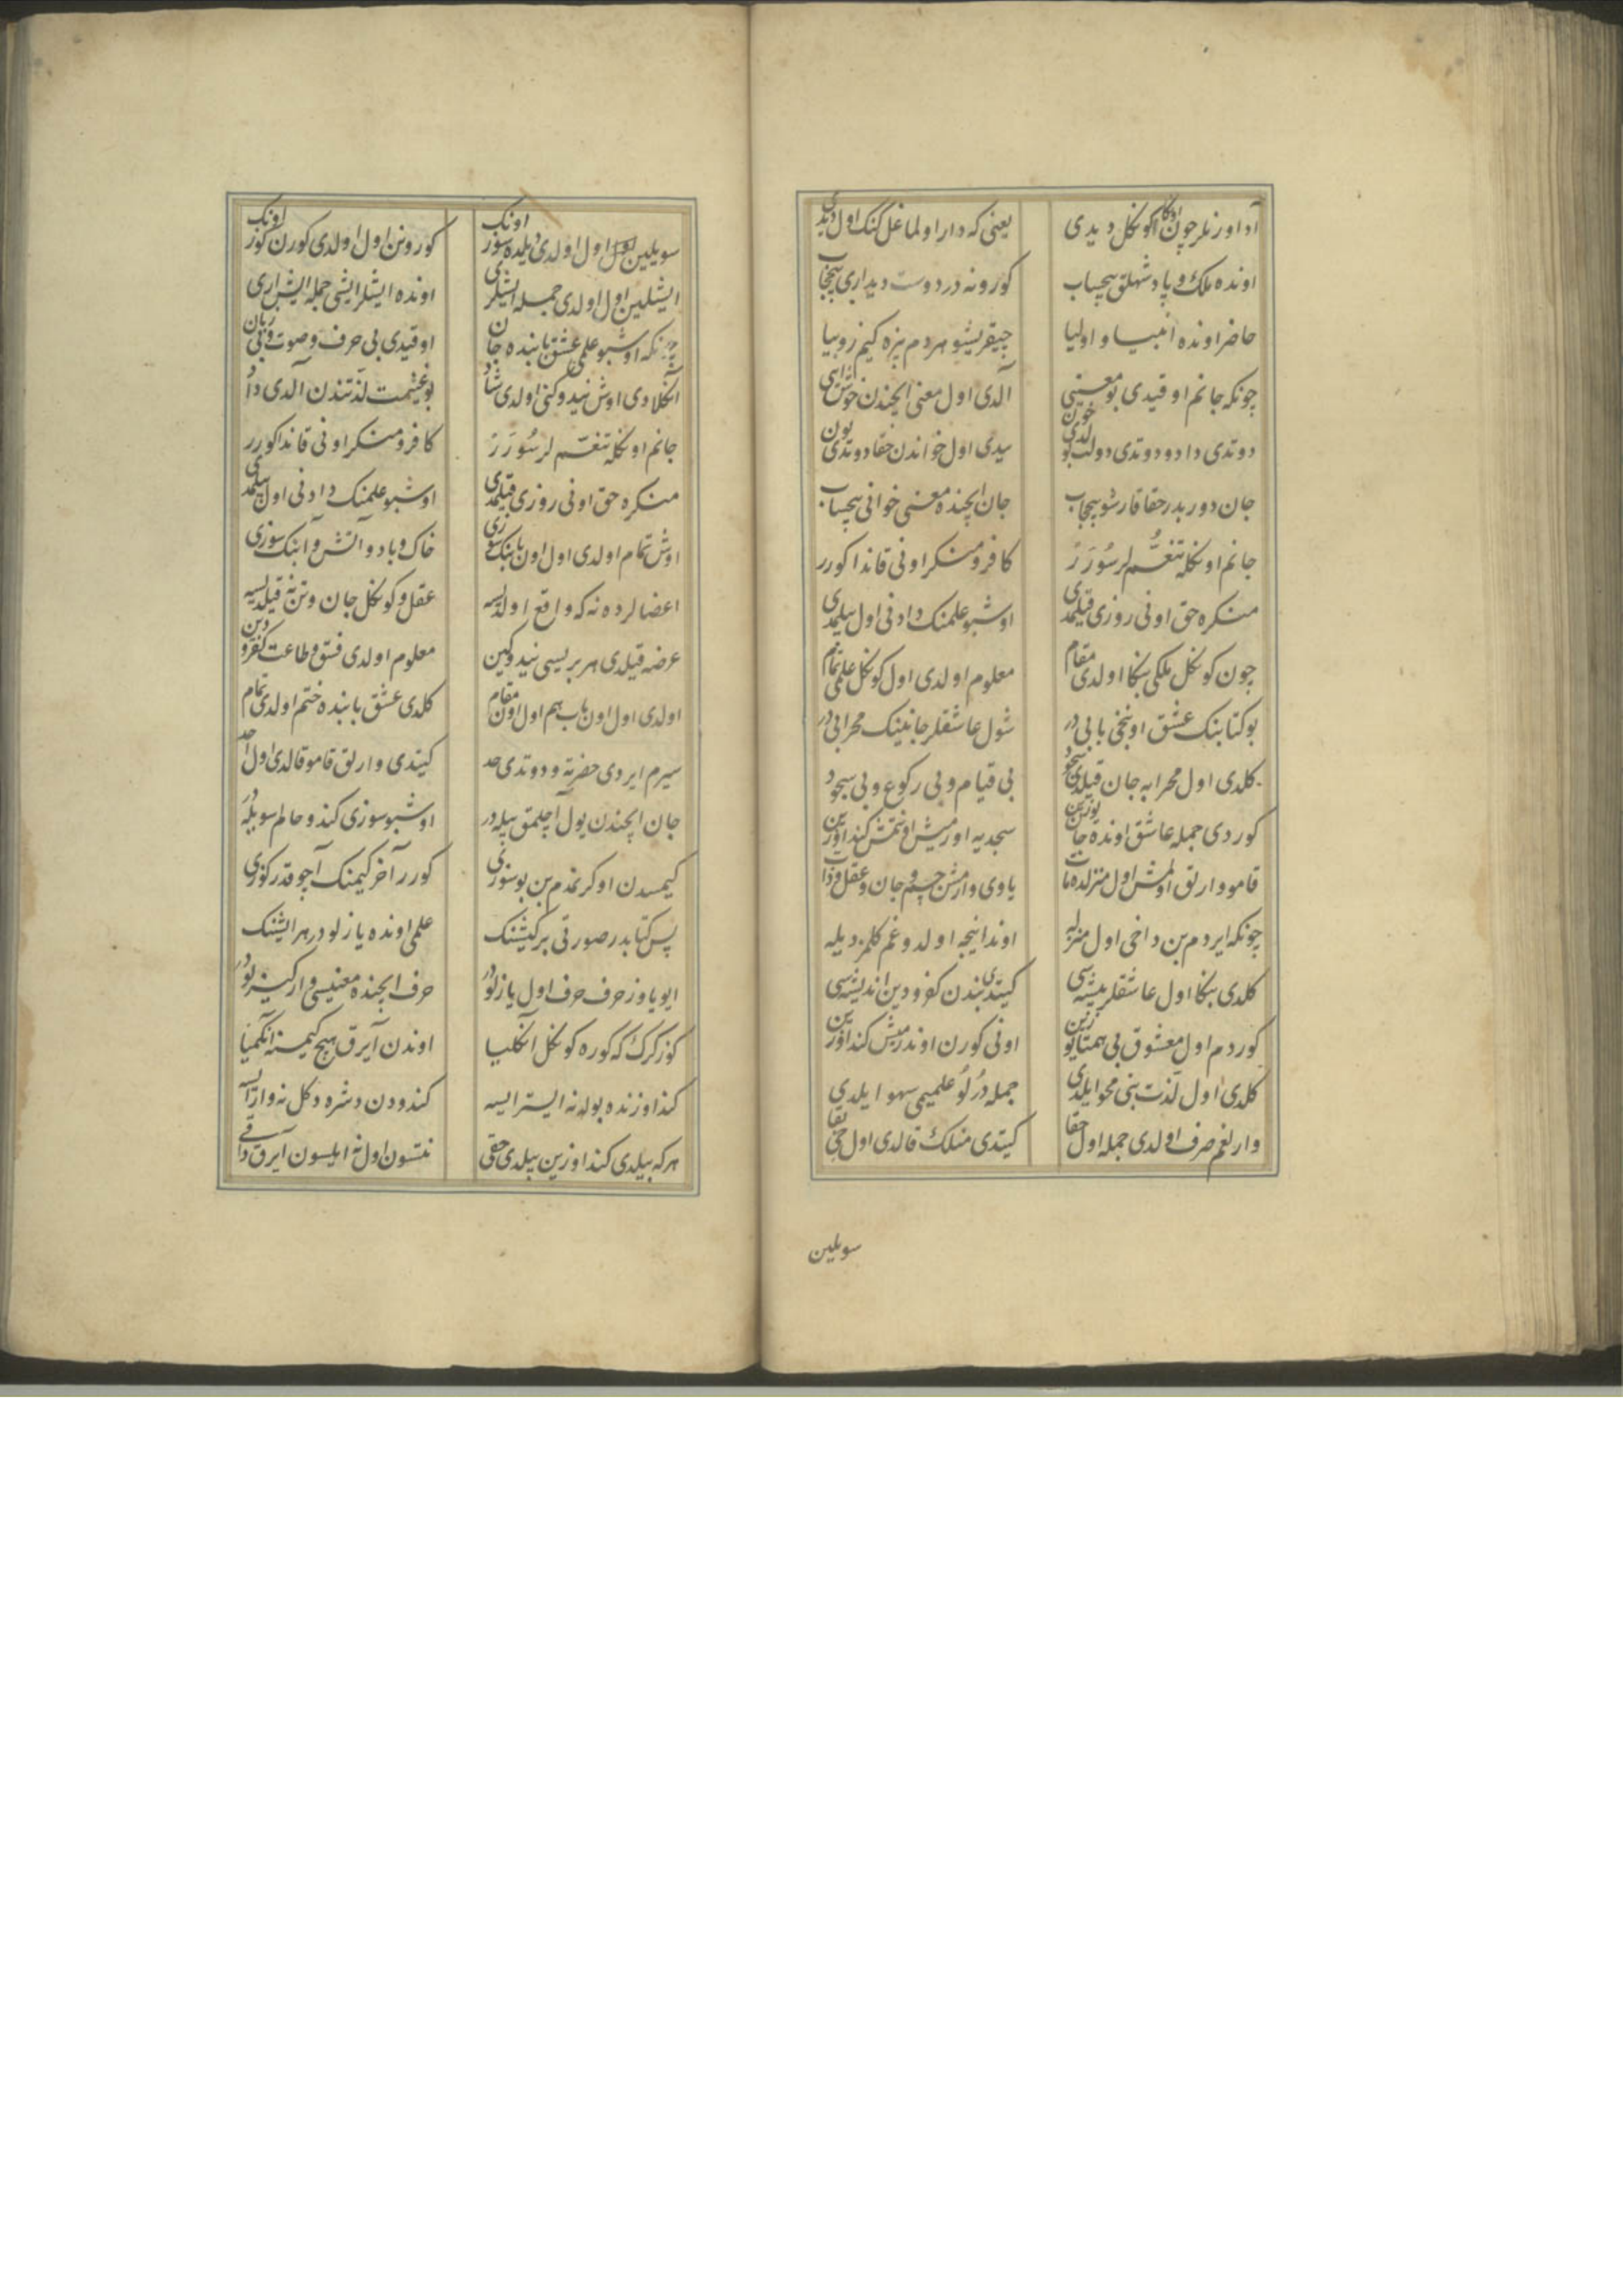 آد اوزنلر چون اوكا كوكل ديدى يعنى كه دار اولماغل كنك اول ديدى
اونده ملك و پادشهلق بيحساب كورونه در دوست ديدارى بيحجاب
حاضر اونده انبيا و اوليا چيقريشو هردم بزه كيم زوبيا
چونكه جانم اوقيدى بو معنيى آلدى اول معنى ايچندن خوش
دوتدى دادو دوتدى دولت بو سيدى اول خواندن حقا دوتدى
جان دور بدر حقا قارشو بيحجاب جان ايچنده معنى خوانى بيحساب
جانم اونكله تنعّم لر سُوَرَرْ كافر و منكر اونى قاندا كورر
منكره حق اونى روزى قيلمدى اوشبو علمنك دادنى اول بيلمدى
چون كوكل ملكى بنكا اولدى مقام معلوم اولدى اول كوكل علمى تمام
بو كتابنك عشق اونجى بابى در شول عاشقلر جانينك محرابى در
كلدى اول محرابه جان قيلدى سجود بى قيام و بى ركوع و بى سجود
كوردى جمله عاشق اونده جان يوزين سجديه اورمش اونتمش كنداوزين
قامو وارلق اولمش اول منزلده مات ياوى وارمش جسم و جان و عقل و ذات
چونكه ايردم بن داخى اول منزله اوندا نيجه اولدوغم كلمز ديله
كلدى بنكا اول عاشقلر پيشه سى كيتدى بندن كفر و دين انديشه سى
كوردم اول معشوق بى همتا يوزين اونى كورن اوندرمش كنداوزين
كلدى اول لذت بنى محو ايلدى جمله دُرلُو علميمى سهو ايلدى
وارلغم صرف اولدى جمله اول حقا كيتدى منلك قالدى اول حى بقا
سويلين
سويلين اول اولدى ديلده سوز اونك كورونن اول اولدى كورن كوز اونك
ايشلين اول اولدى جمله ايشلرى اونده ايشلر ايشى جمله ايش ارى
چونكه اوشبو علمى عشق بابنده جان اوقيدى بى حرف و صوت و بى زبان
آنكلادى اوش نيدوكنى اولدى شاد بو غنيمت لذتندن آلدى داد
جانم اونكله تنعّم لر سُوَرَرْ كافر و منكر اونى قاندا كورر
منكره حق اونى روزى قيلمدى اوشبو علمنك دادنى اول بيلمدى
اوش تمام اولدى اول اون بابنك سوزى خاك و باد و آتش و آبنك سوزى
اعضالرده نه كه واقع اولديسه عقل و كوكل جان و تن نه قيلديسه
عرضه قيلدى هر بريسى نيدوكين معلوم اولدى فسق و طاعت كفر و دين
اولدى اول اون باب هم اول اون مقام كلدى عشق بابنده ختم اولدى تمام
سيرم ايردى حضرته و دوتدى حد كيتدى وارلق قامو قالدى اول احد
جان ايچندن يول آچلمق بيله در اوشبو سوزى كندو حالم سويله در
كيمسدن اوكرنمدم بن بو سوزى كورر آخر كيمنك آچوقدر كوزى
پس كتابدر صورتى بر كيشنك علمى اونده يازلودر هر ايشنك
ايو ياوز حرف حرف اول يازلودر حرف ايچنده معنيسى وار كيزلودر
كوز كرك كه كوره كوكل آنكليا اوندن آيرق هيچ كيمسنه انكميا
كنداوزنده بوله نه ايسترايسه كندودن دشره دكل نه وارايسه
هر كه بيلدى كنداوزين بيلدى حقى نتسون اول نه ايلسون آيرق داقى